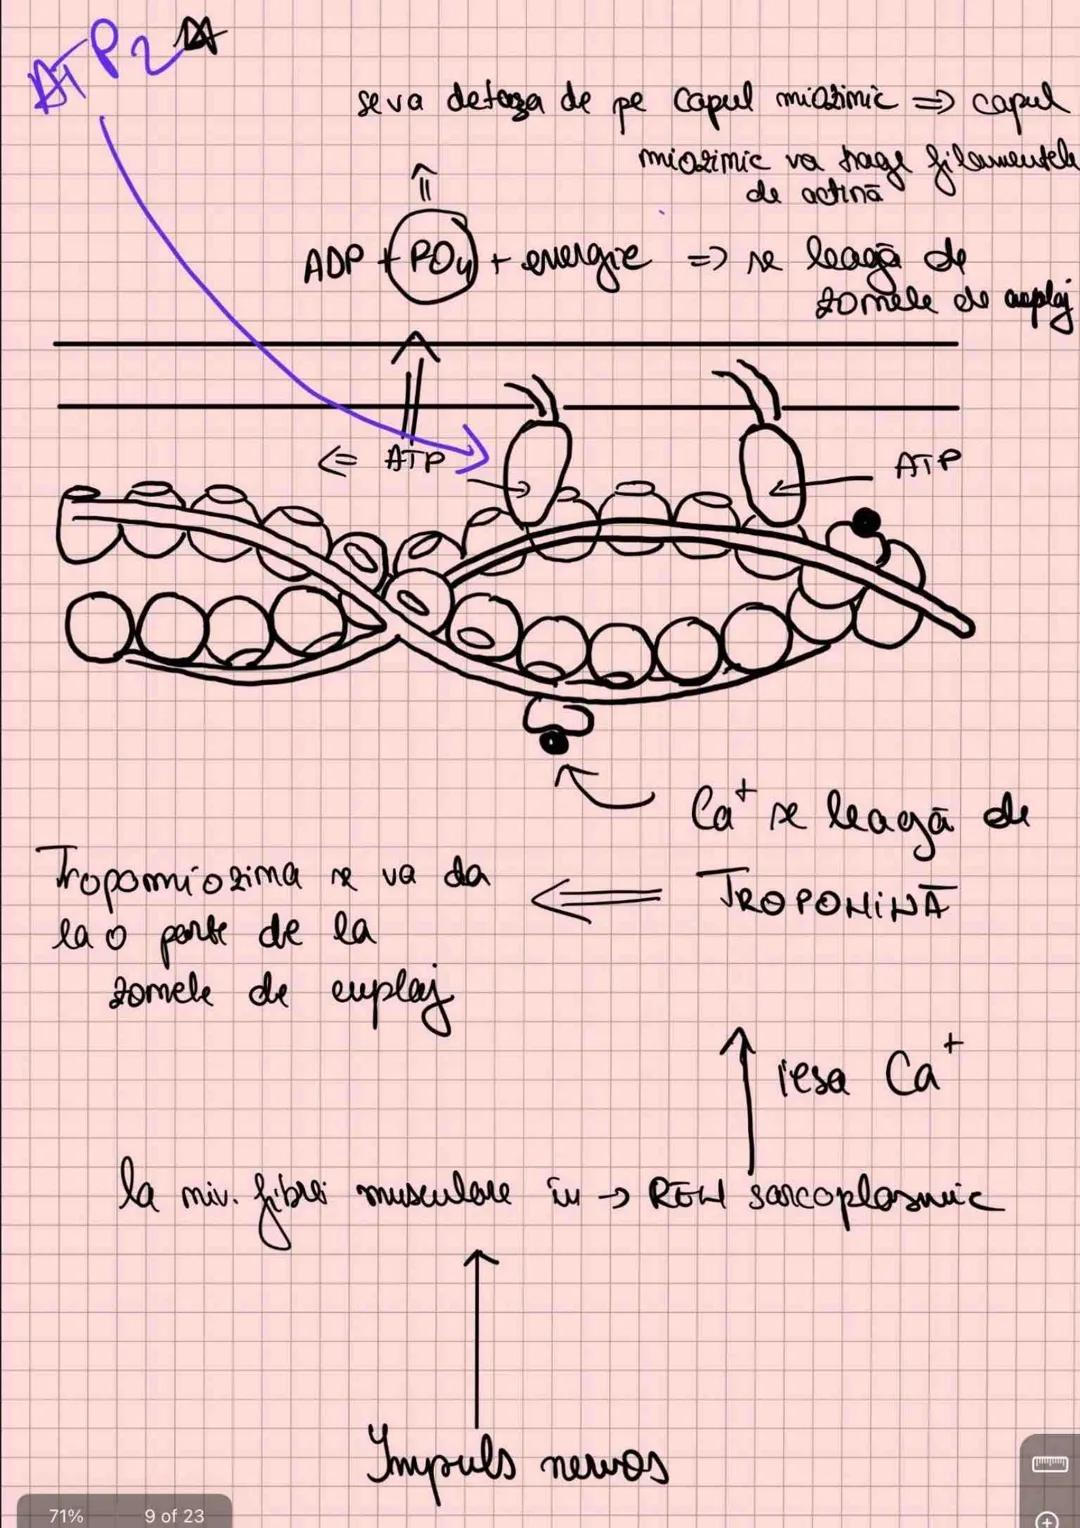 ATP 2
se va detașa de pe capul miozinic => capul
miozinic va trage filamentele
de actină
ADP + PO4 + energie => se leagă de
zonele de cuplaj
<= ATP
ATP
Ca+ se leagă de
TROPONINĂ
Tropomiozina se va da
la o parte de la
zonele de cuplaj
iese Ca+
la niv. fibrei musculare în → REN sarcoplasmic
Impuls nervos
71% 9 of 23